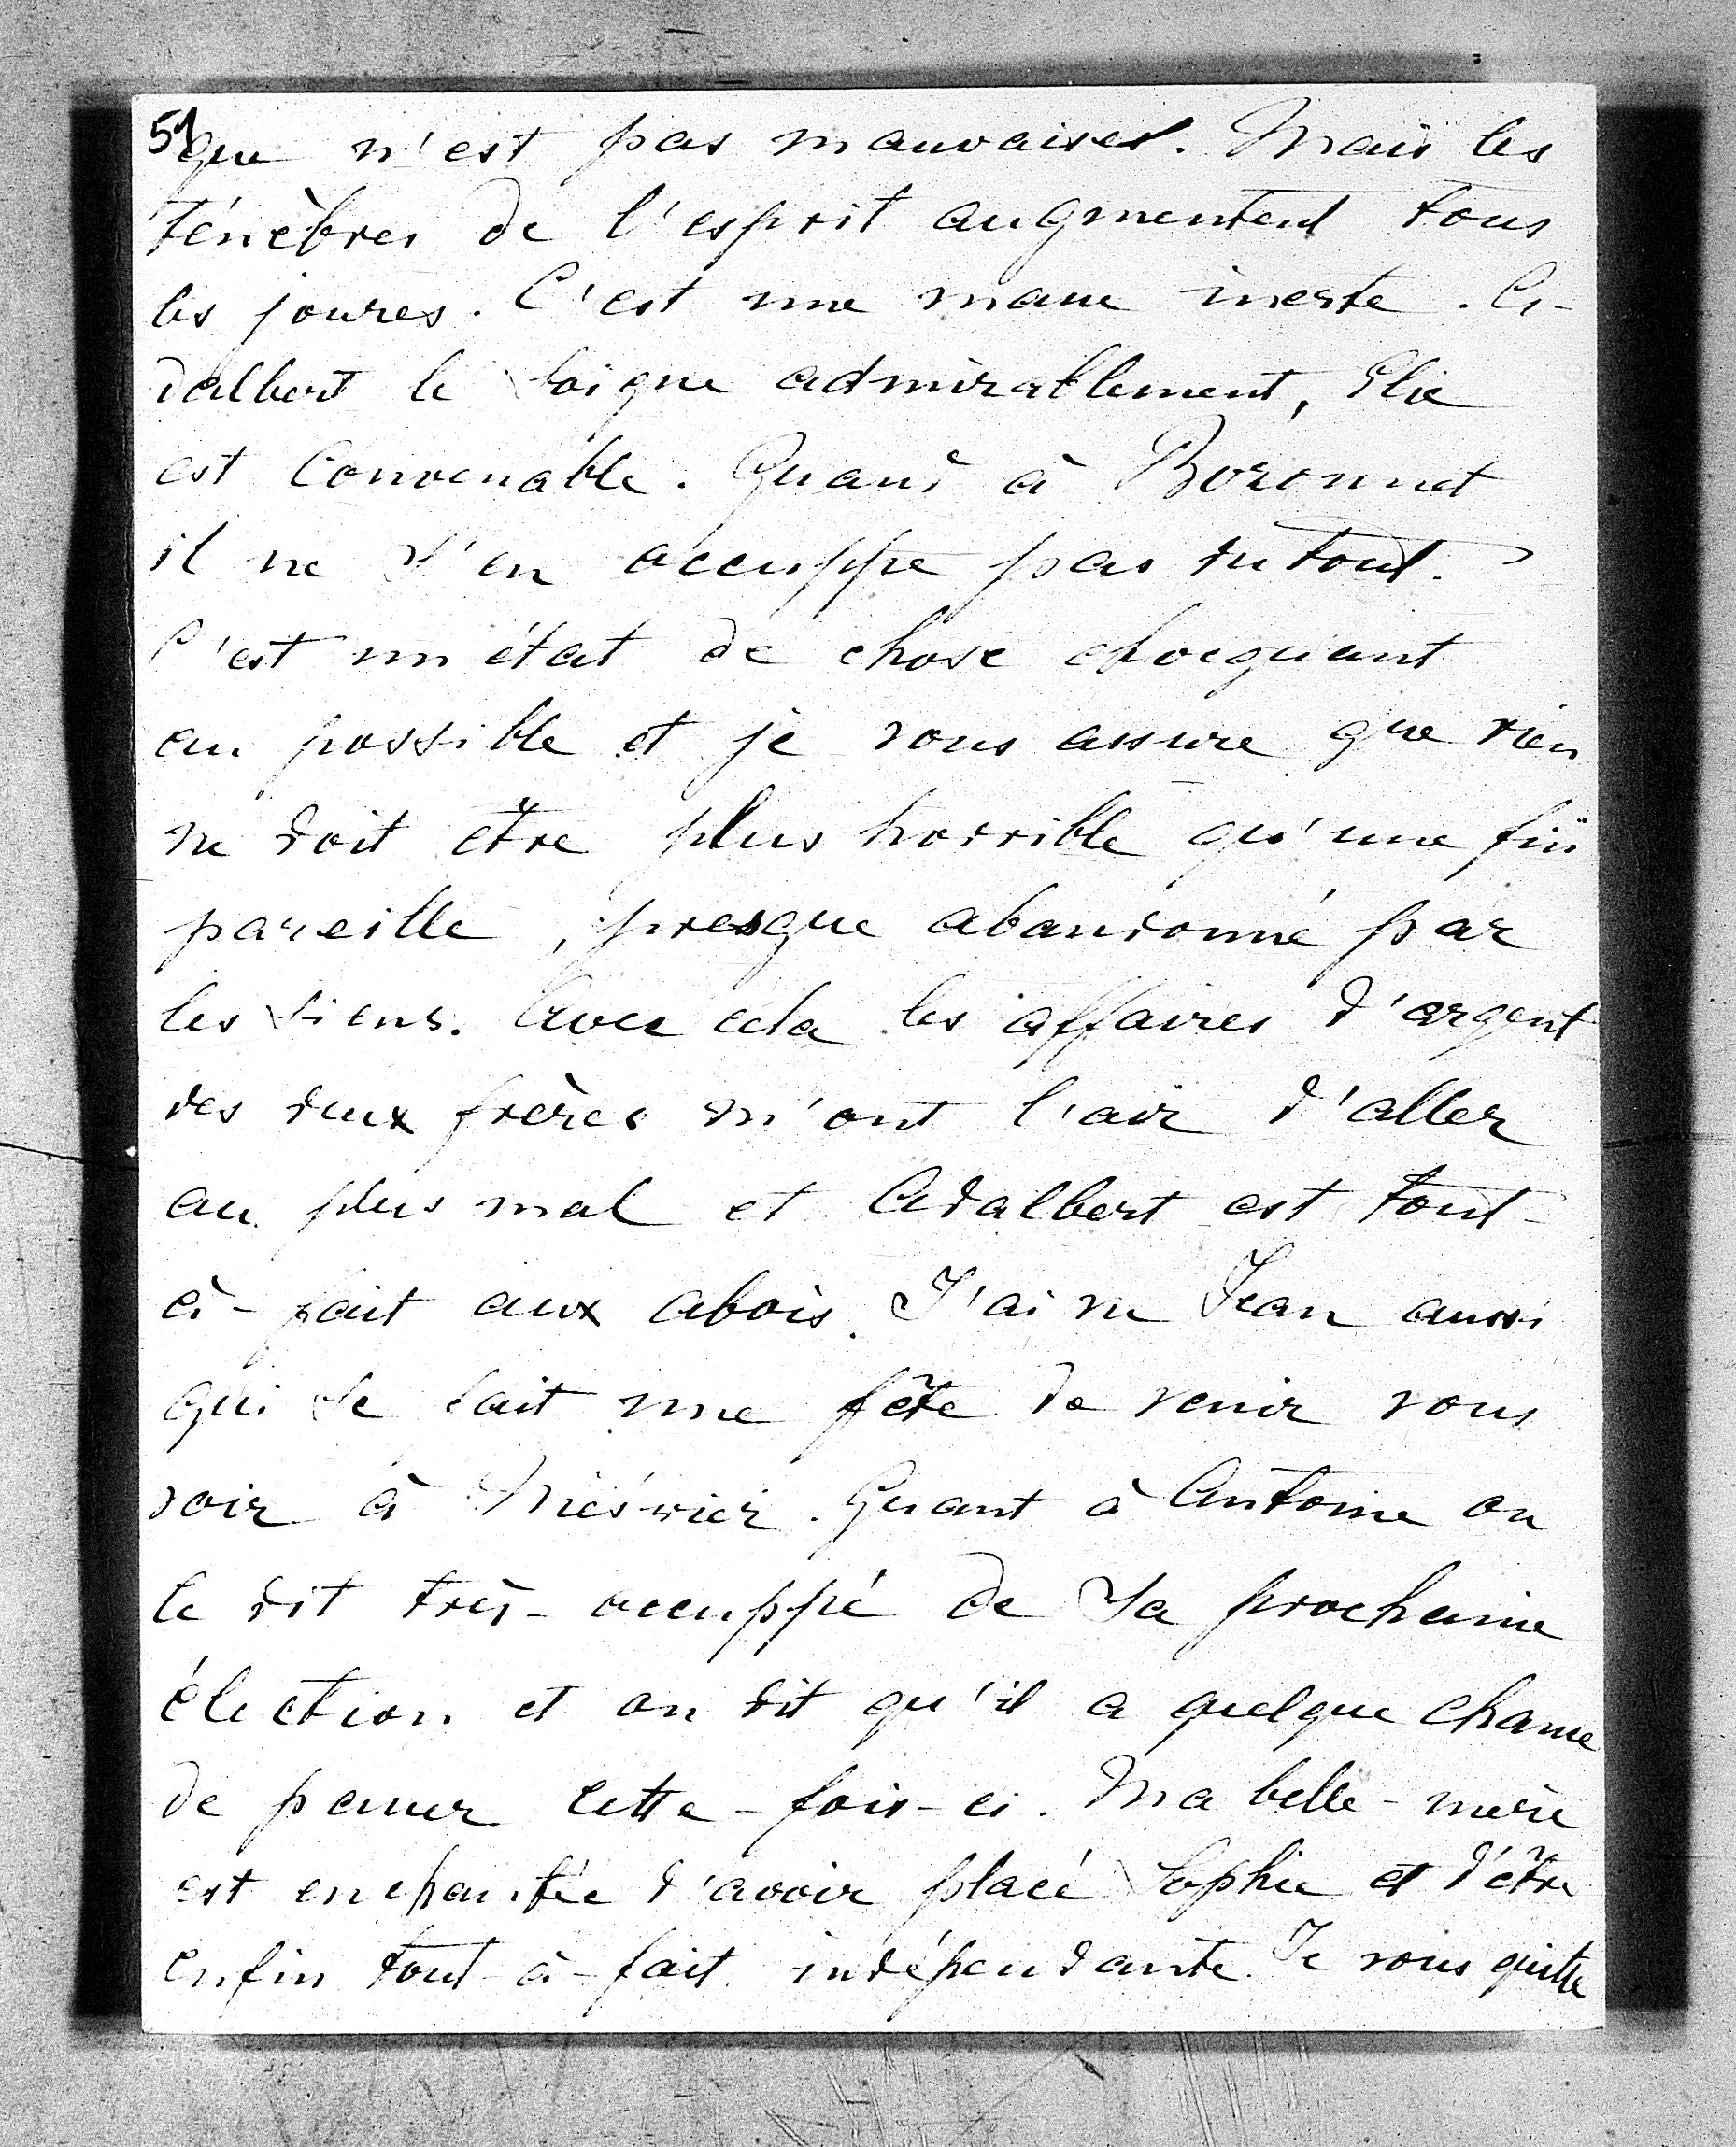 51
que n'est pas mauvaises. Mais les
ténèbres de l'esprit augmentent tous
les joures. C'est une masse inerte. A-
dalbert le soigne admirablement, Elie
est convenable. Quand à Bozonnet
il ne s'en occuppe pas du tout.
C'est un état de chose chocquant
au possible et je vous assure que rien
ne doit être plus horrible qu'une fin
pareille, presque abandonné par
les siens. Avec cela les affaires d'argent
des deux frères m'ont l'air d'aller
au plus mal et Adalbert est tout-
à-fait aux abois. J'ai vu Jean aussi
qui se fait une fête de venir vous
voir à Niéśwież. Quant à Antoine on
le dit très-occuppé de sa prochaine
élection et on dit qu'il a quelque chance
de passer cette-fois-ci. Ma belle-mère
est enchantée d'avoir placé Sophie et d'être
enfin tout-à-fait indépendante. Je vous quitte